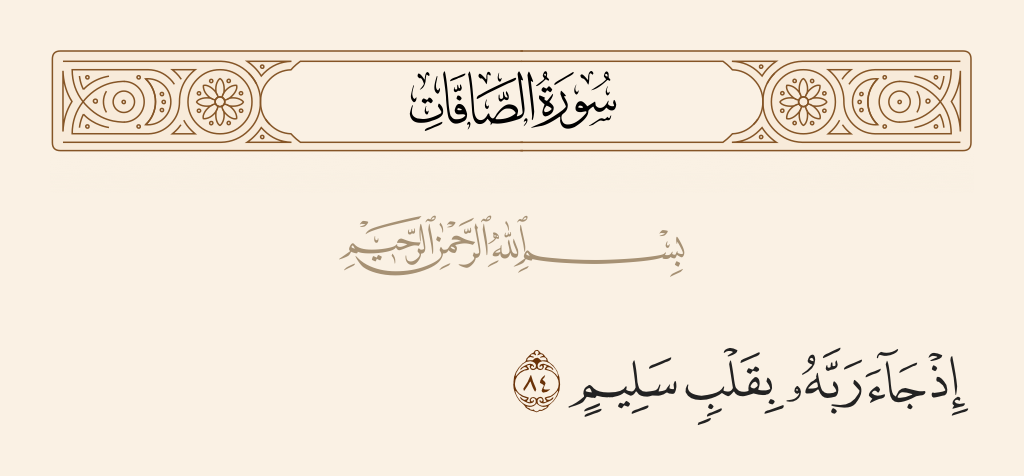 سُورَةُ الصَّافَّاتِ
بِسْمِ ٱللَّهِ ٱلرَّحْمَٰنِ ٱلرَّحِيمِ
إِذْ جَآءَ رَبَّهُۥ بِقَلْبٍ سَلِيمٍ ٨٤